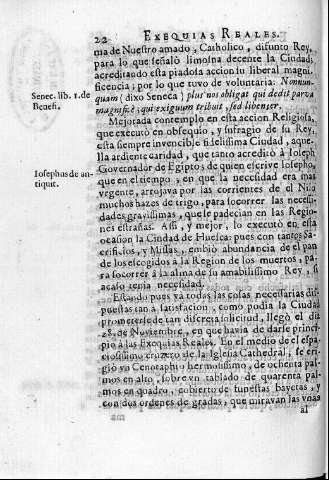 22 EXEQUIAS REALES.
ma de Nuestro amado, Catholico, difunto Rey,
para lo que señalò limosna decente la Ciudad;
acreditando esta piadosa accion su liberal magni-
ficencia; por lo que tuvo de voluntaria: Nonnun-
Senec. lib. 1. de
Benefi.
quam (dixo Seneca) plus nos obligat qui dedit parva
magnificè, qui exiguum tribuit, sed libenter.
Mejorada contemplo en esta accion Religiosa,
que executò en obsequio, y sufragio de su Rey,
esta siempre invencible fidelissima Ciudad, aque-
lla ardiente caridad, que tanto acreditò à Ioseph
Iosephus de an-
tiquit.
Governador de Egipto; de quien escrive Iosepho,
que en el tiempo, en que la necessidad era mas
vrgente, arrojava por las corrientes de el Nilo
muchos hazes de trigo, para socorrer las necessi-
dades gravissimas, que se padecian en las Regio-
nes estrañas. Assi, y mejor, lo executò en esta
ocasion la Ciudad de Huesca; pues con tantos Sa-
crificios, y Missas, embiò abundancia de el pan
de los escogidos à la Region de los muertos, pa-
ra socorrer à la alma de su amabilissimo Rey, si
acaso tenia necessidad.
Estando pues yà todas las cosas necessarias dis-
puestas tan à satisfacion, como podia la Ciudad
prometerse de tan discreta solicitud, llegò el dia
28. de Noviembre, en que havia de darse princi-
pio à las Exequias Reales. En el medio de el espa-
ciosissimo cruzero de la Iglesia Cathedral, se eri-
giò vn Cenotaphio hermosissimo, de ochenta pal-
mos en alto, sobre vn tablado de quarenta pal-
mos en quadro, cubierto de funestas bayetas, y
con dos ordenes de gradas, que miravan las vnas
al